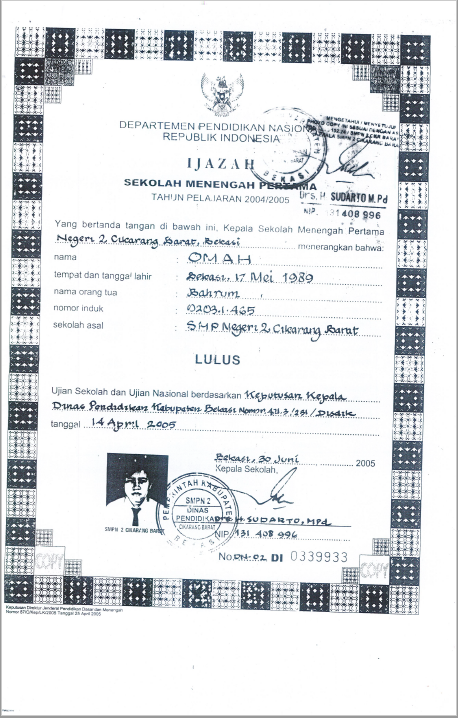 DEPARTEMEN PENDIDIKAN NASIONAL
REPUBLIK INDONESIA
IJAZAH
SEKOLAH MENENGAH PERTAMA
TAHUN PELAJARAN 2004/2005
MENGETAHUI / MENYETUJUI
BEKASI
Drs. H SUDARTO M.Pd
NIP. 131 408 996
Yang bertanda tangan di bawah ini, Kepala Sekolah Menengah Pertama
Negeri 2 Cikarang Barat, Bekasi menerangkan bahwa:
nama : OMAH
tempat dan tanggal lahir : Bekasi, 17 Mei 1989
nama orang tua : Bahrum
nomor induk : 0203.1.465
sekolah asal : SMP Negeri 2 Cikarang Barat
LULUS
Ujian Sekolah dan Ujian Nasional berdasarkan Keputusan Kepala
Dinas Pendidikan Kabupaten Bekasi Nomor 411.3/251/Disdik
tanggal 14 April 2005
Bekasi, 30 Juni 2005
Kepala Sekolah,
PEMERINTAH KABUPATEN
SMPN 2
DINAS
PENDIDIKAN
CIKARANG BARAT
BEKASI
SMPN 2 CIKARANG BARAT
Drs. H. SUDARTO, MPd
NIP. 131 408 996
No. DN-02 DI 0339933
COPY
COPY
Keputusan Direktur Jenderal Pendidikan Dasar dan Menengah
Tanggal 25 April 2005